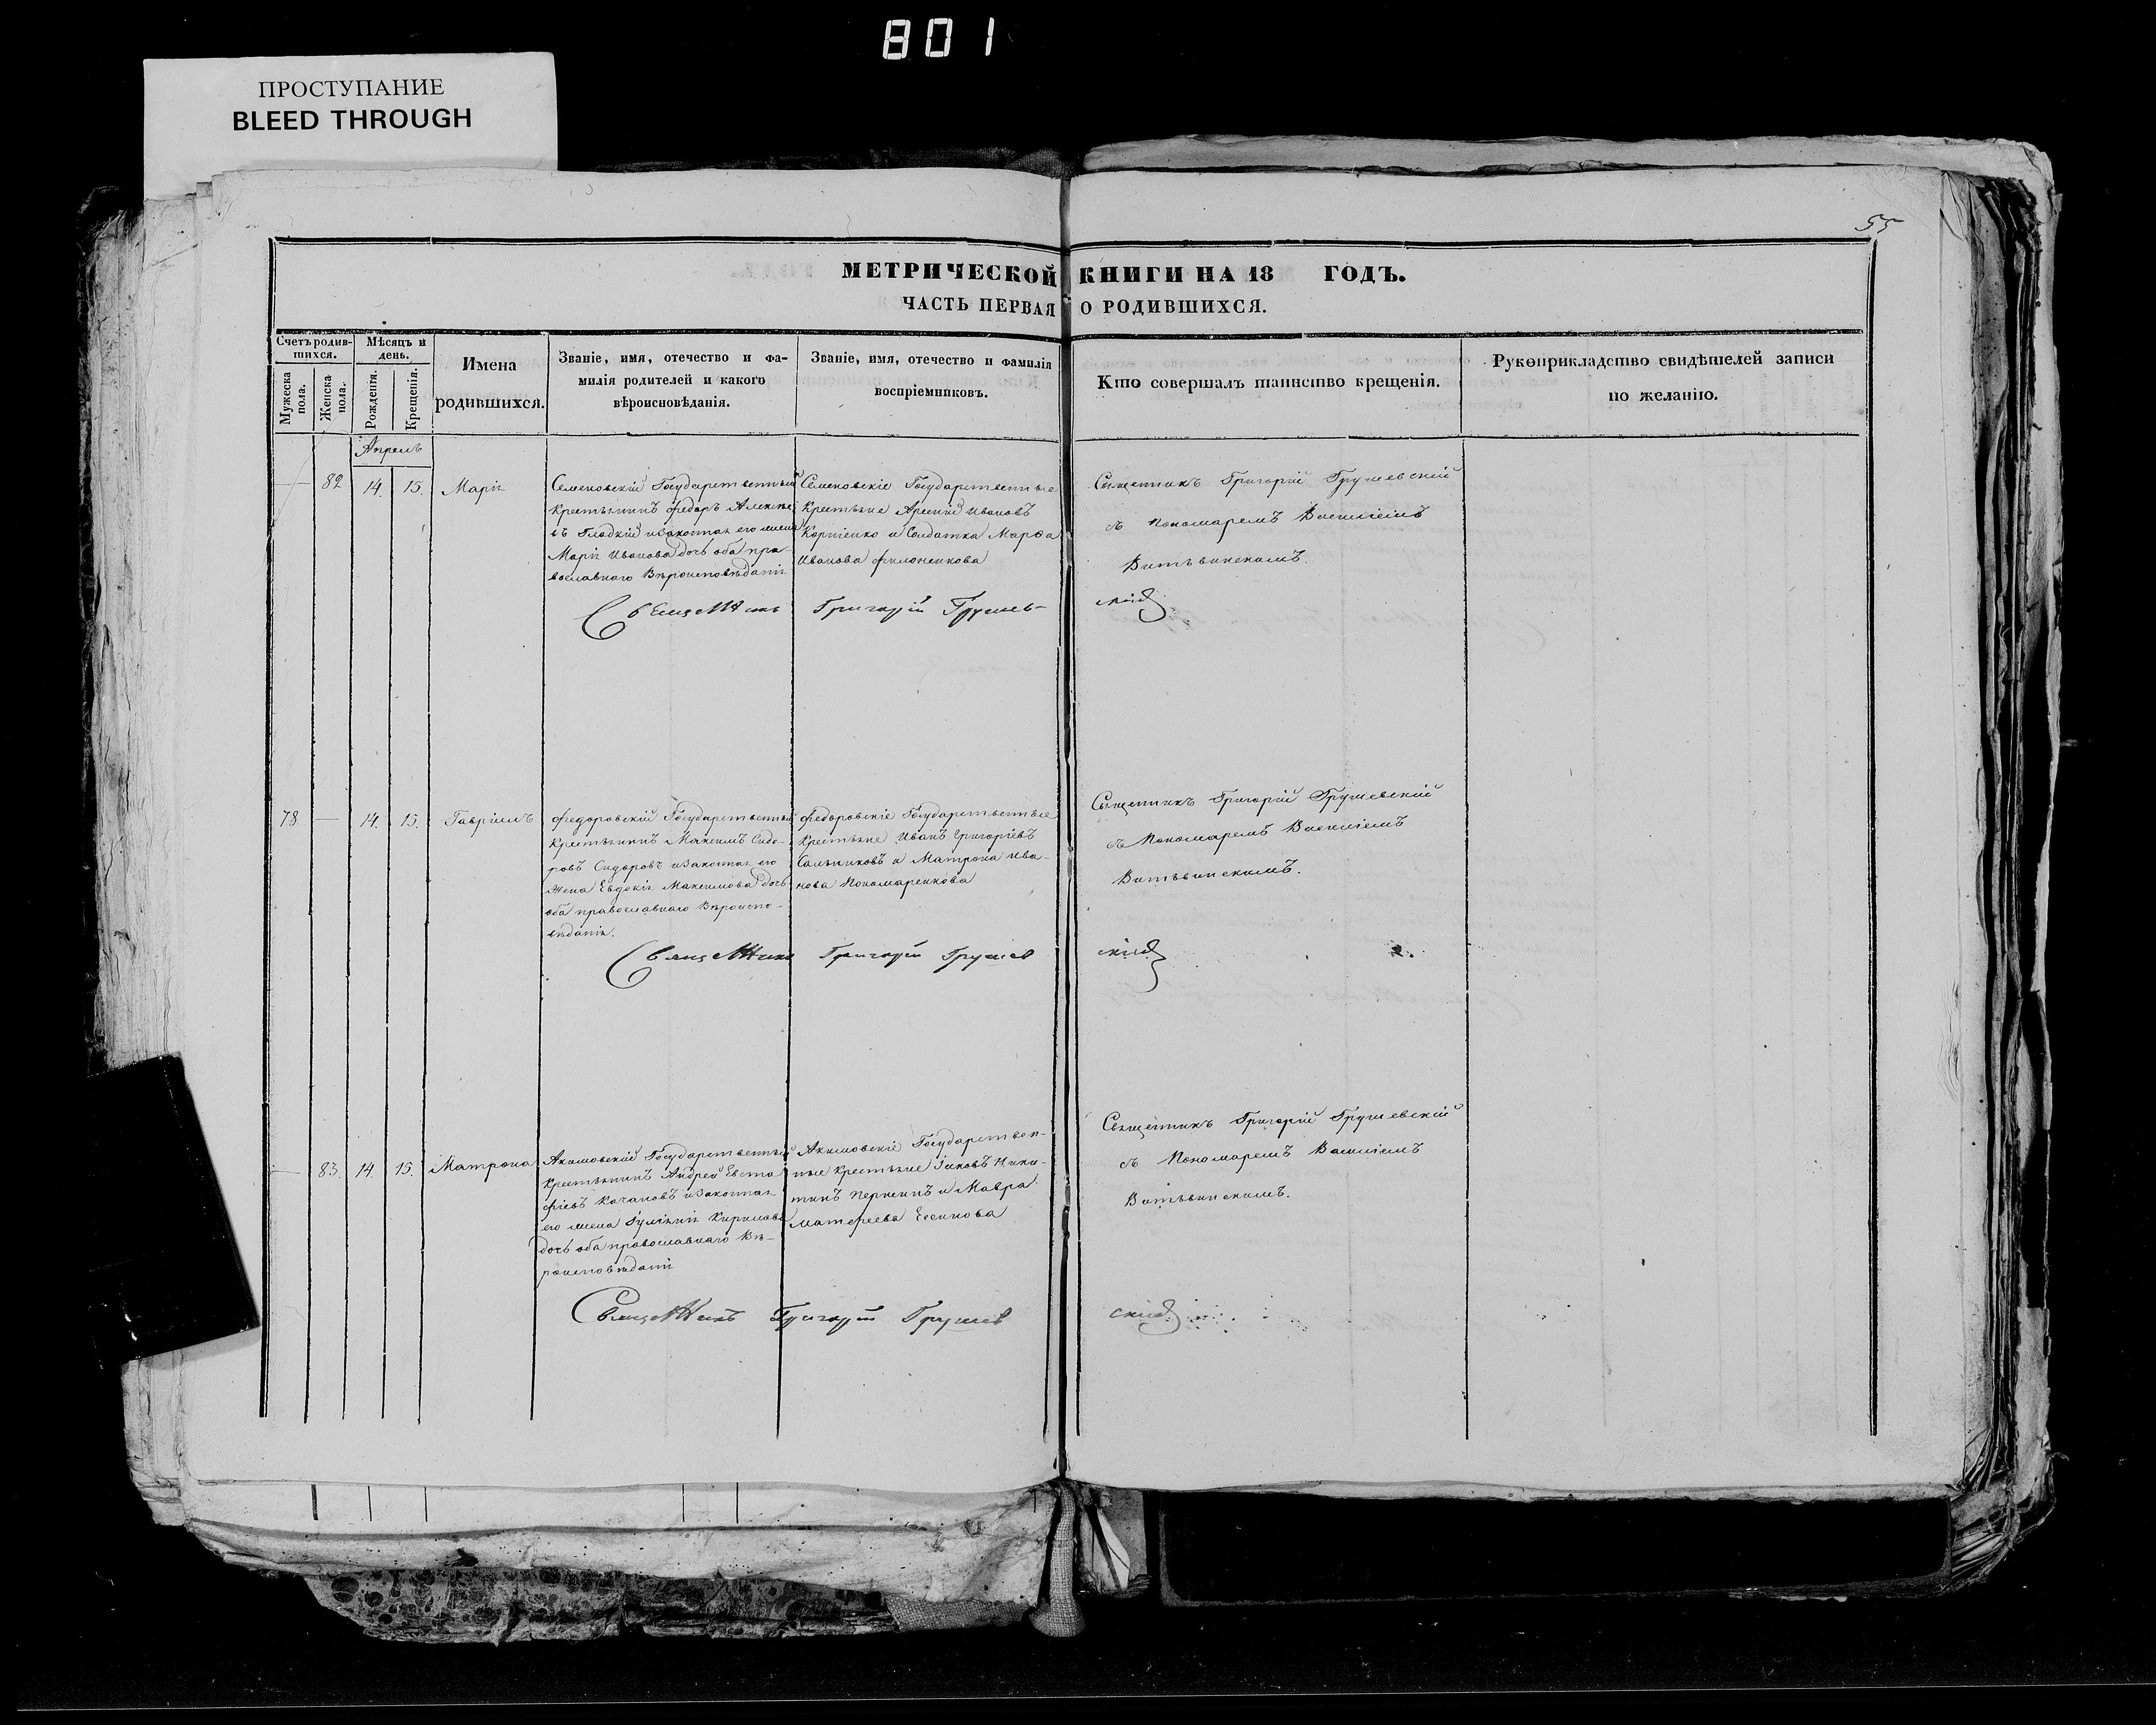 801
ПРОСТУПАНИЕ
BLEED THROUGH
55
МЕТРИЧЕСКОЙ КНИГИ НА 18 ГОДЪ.
ЧАСТЬ ПЕРВАЯ О РОДИВШИХСЯ.
Счетъ родив-
шихся.
Мужеска
пола.
Женска
пола.
Мѣсяцъ и
день.
Рожденія.
Крещенія.
Имена
родившихся.
Званіе, имя, отечество и фа-
милія родителей и какого
вѣроисповѣданія.
Званіе, имя, отечество и фамилія
воспріемниковъ.
Кто совершалъ таинство крещенія.
Рукоприкладство свидѣтелей записи
по желанію.
Апрель
82 14. 15. Марія
Семеновскій Государственный
крестьянинъ Федоръ Алексѣе
въ Гладкій и законная его жена
Марія Иванова дочь оба пра-
вославнаго Вѣроисповѣданія
Семеновскіе Государственные
крестьяне Арсеній Ивановъ
Корніенко и Солдатка Марфа
Иванова Филоненкова
Священникъ Григорій Грушевскій
съ Пономаремъ Василіемъ
Витвинскимъ.
Священникъ Григорій Грушев-
скій
78 — 14. 15. Гавріилъ
Федоровскій Государственный
крестьянинъ Максимъ Сидо-
ровъ Сидоровъ и законная его
жена Евдокія Максимова дочь
оба православнаго Вѣроиспо-
вѣданія.
Федоровскіе Государственные
крестьяне Иванъ Григоріевъ
Сальниковъ и Матрона Ива-
нова Пономаренкова
Священникъ Григорій Грушевскій
съ Пономаремъ Василіемъ
Витвинскимъ.
Священникъ Григорій Грушев
скій
— 83. 14. 15. Матрона
Акимовскій Государственный
крестьянинъ Андрей Евста-
фіевъ Качановъ и законная
его жена Гуліянія Кирилова
дочь оба православнаго Вѣ-
роисповѣданія
Акимовскіе Государствен-
ные крестьяне Іаковъ Ники-
тинъ и Мавра
Матфеева Есенкова
Священникъ Григорій Грушевскій
съ Пономаремъ Василіемъ
Витвинскимъ.
Священникъ Григорій Грушев
скій